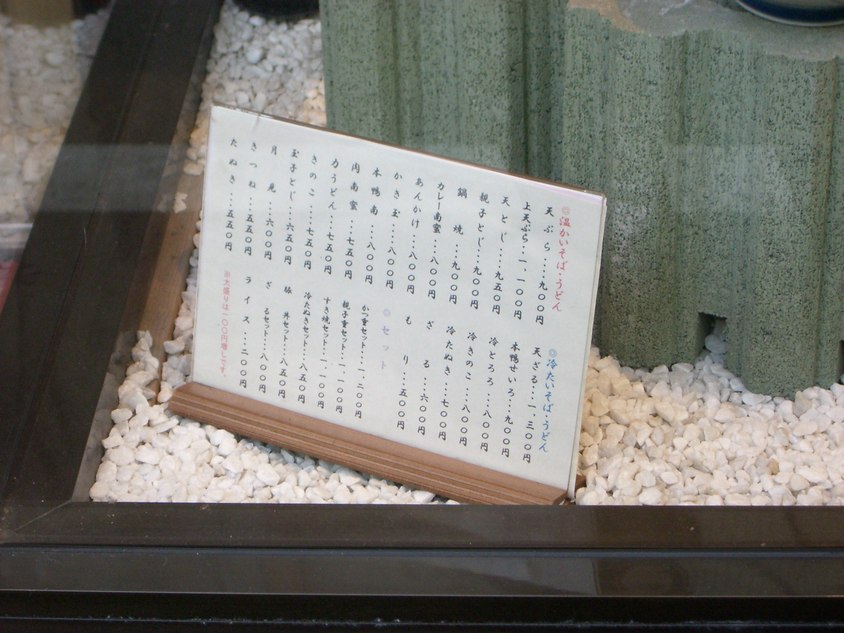 ◎温かいそば・うどん
天ぷら‥‥九〇〇円
上天ぷら‥一、一〇〇円
天とじ‥‥九五〇円
親子とじ‥‥九〇〇円
鍋焼‥‥九〇〇円
カレー南蛮‥‥八〇〇円
あんかけ‥‥八〇〇円
かき玉‥‥八〇〇円
本鴨南‥‥八〇〇円
肉南蛮‥‥七五〇円
力うどん‥‥七五〇円
きのこ‥‥七五〇円
玉子とじ‥‥六五〇円
月見‥‥六〇〇円
きつね‥‥五五〇円
たぬき‥‥五五〇円
◎冷たいそば・うどん
天ざる‥‥一、三〇〇円
本鴨せいろ‥九〇〇円
冷とろろ‥‥八〇〇円
冷きのこ‥‥八〇〇円
冷たぬき‥‥七〇〇円
ざる‥‥六〇〇円
もり‥‥五〇〇円
◎セット
かつ重セット‥一、二〇〇円
親子重セット‥一、一〇〇円
すき焼セット‥一、一〇〇円
冷たぬきセット‥八五〇円
豚丼セット‥八五〇円
ざるセット‥八〇〇円
ライス‥‥二〇〇円
※大盛りは一〇〇円増しです。